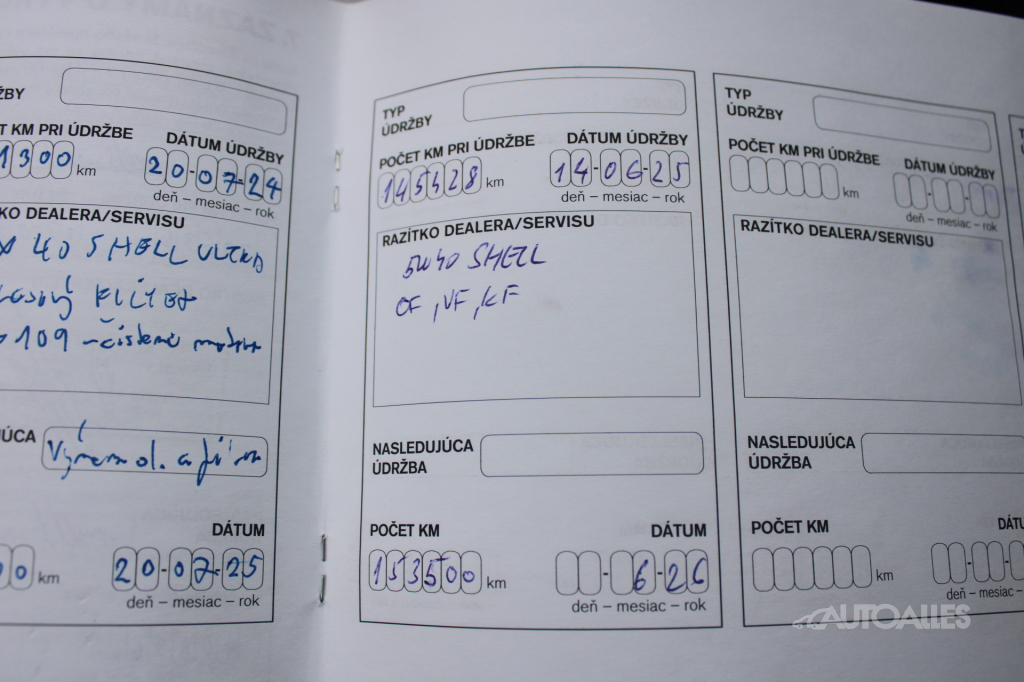 ŽBY
ET KM PRI ÚDRŽBE
DÁTUM ÚDRŽBY
1300 km
20-07-24
deň – mesiac – rok
KO DEALERA/SERVISU
40 SHELL ULTRA
FILTER
109 - čistenie
ÚCA
Výmena ol. a
DÁTUM
0 km
20-07-25
deň – mesiac – rok
TYP
ÚDRŽBY
POČET KM PRI ÚDRŽBE
DÁTUM ÚDRŽBY
145428 km
14-06-25
deň – mesiac – rok
RAZÍTKO DEALERA/SERVISU
5W40 SHELL
OF, VF, KF
NASLEDUJÚCA
ÚDRŽBA
POČET KM
DÁTUM
153500 km
- 6-26
deň – mesiac – rok
TYP
ÚDRŽBY
POČET KM PRI ÚDRŽBE
DÁTUM ÚDRŽBY
km
deň – mesiac – rok
RAZÍTKO DEALERA/SERVISU
NASLEDUJÚCA
ÚDRŽBA
POČET KM
DÁTU
km
deň – mesiac –
AUTOALLES